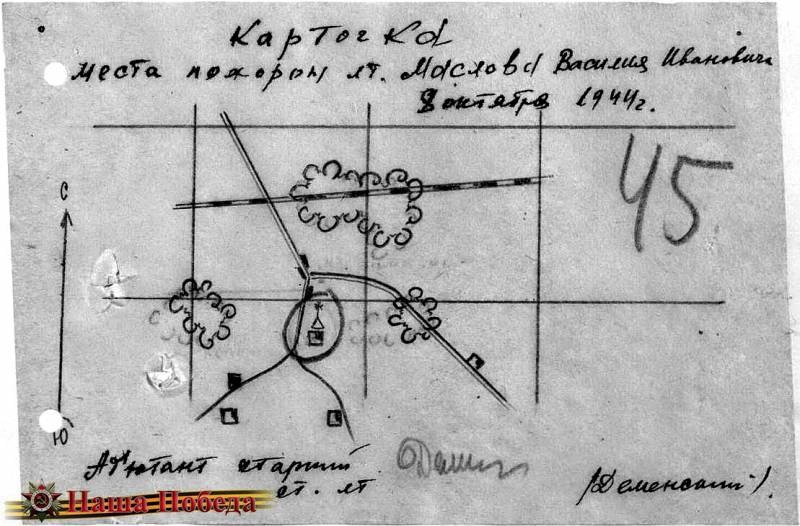 Карточка
места похорон лт. Маслова Василия Ивановича
8 октября 1944г.
45
С
Ю
Адъютант старший
ст. лт
(Деменский).
Наша Победа